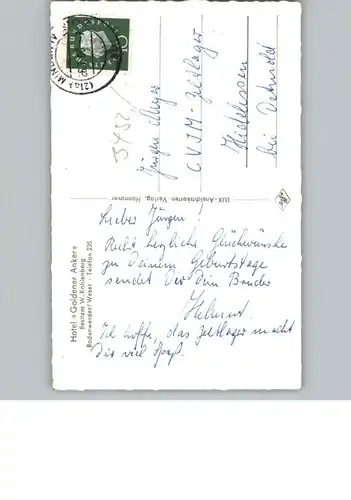 (21a) MINDEN
Jürgen Meyer
CVJM-Zeltlager
Hiddesen
bei Detmold
5452
LUX-Ansichtkarten Verlag, Hannover
Lieber Jürgen!
Recht herzliche Glückwünsche
zu Deinem Geburtstage
sendet Dir Dein Bruder
Helmut
Ich hoffe, das Zeltlager macht
Dir viel Spaß.
Hotel »Goldener Anker«
Besitzer W. Kohlenberg
Bodenwerder/Weser · Telefon 235